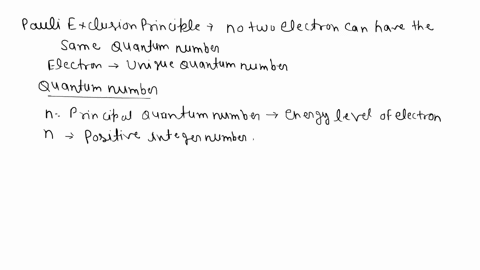 Pauli Exclusion Principle → no two electron can have the
Same Quantum number
Electron → Unique Quantum number
Quantum number
n: Principal Quantum number → energy level of electron
n → Positive integer number.